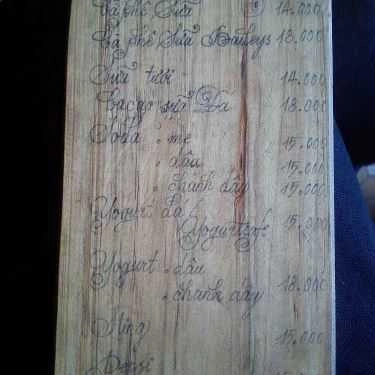 Cà phê Sữa 14.000
Cà phê Sữa Baileys 18.000
Sữa tươi 14.000
Cacao sữa Đá 18.000
Soda : me 15.000
: dâu 15.000
: chanh dây 15.000
Yogurt đá
(Yogurt cafe 15.000
Yogurt : dâu
: chanh dây 18.000
Sting 15.000
Pepsi